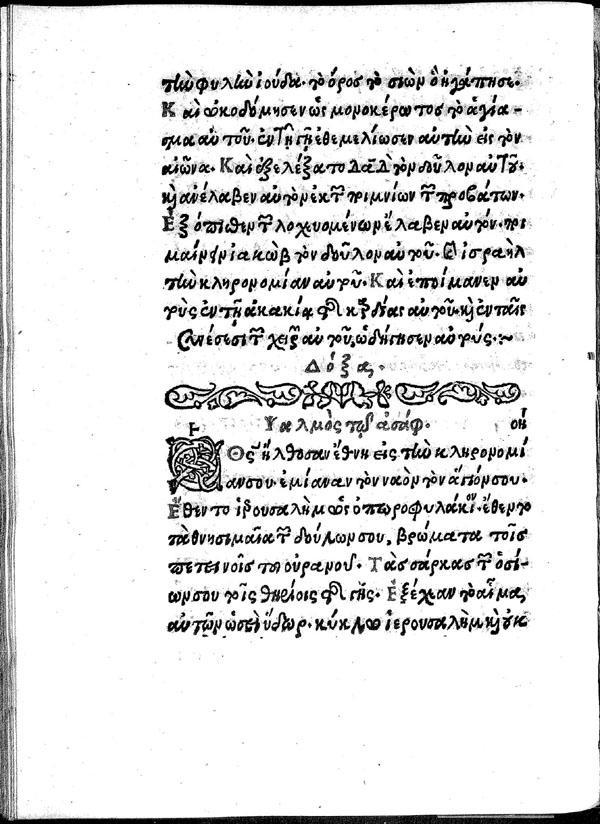 τὴν φυλὴν ἰούδα· τὸ ὄρος τὸ σιὼν ὃ ἠγάπησε.
Καὶ ᾠκοδόμησεν ὡς μονοκέρωτος τὸ ἁγία-
σμα αὐτοῦ· ἐν τῇ γῇ ἐθεμελίωσεν αὐτὴν εἰς τὸν
αἰῶνα. Καὶ ἐξελέξατο Δα̅δ̅ τὸν δοῦλον αὐτοῦ·
καὶ ἀνέλαβεν αὐτὸν ἐκ τῶν ποιμνίων τῶν προβάτων.
Ἐξόπισθεν τῶν λοχευομένων ἔλαβεν αὐτόν· ποι
μαίνειν ἰακὼβ τὸν δοῦλον αὐτοῦ· καὶ ἰσραὴλ
τὴν κληρονομίαν αὐτοῦ. Καὶ ἐποίμανεν αὐ
τοὺς ἐν τῇ ἀκακίᾳ τῆς καρδίας αὐτοῦ· καὶ ἐν ταῖς
συνέσεσι τῶν χειρῶν αὐτοῦ, ὡδήγησεν αὐτούς. :~
Δόξα.
Ψαλμὸς τῷ ἀσάφ. οη
Ὁ Θς̅ ἤλθοσαν ἔθνη εἰς τὴν κληρονομί
αν σου· ἐμίαναν τὸν ναὸν τὸν ἅγιόν σου.
Ἔθεντο ἱερουσαλὴμ ὡς ὀπωροφυλάκιον· ἔθεντο
τὰ θνησιμαῖα τῶν δούλων σου, βρώματα τοῖς
πετεινοῖς τοῦ οὐρανοῦ. Τὰς σάρκας τῶν ὁσί-
ων σου τοῖς θηρίοις τῆς γῆς. Ἐξέχεαν τὸ αἷμα
αὐτῶν ὡσεὶ ὕδωρ· κύκλῳ ἱερουσαλὴμ καὶ οὐκ